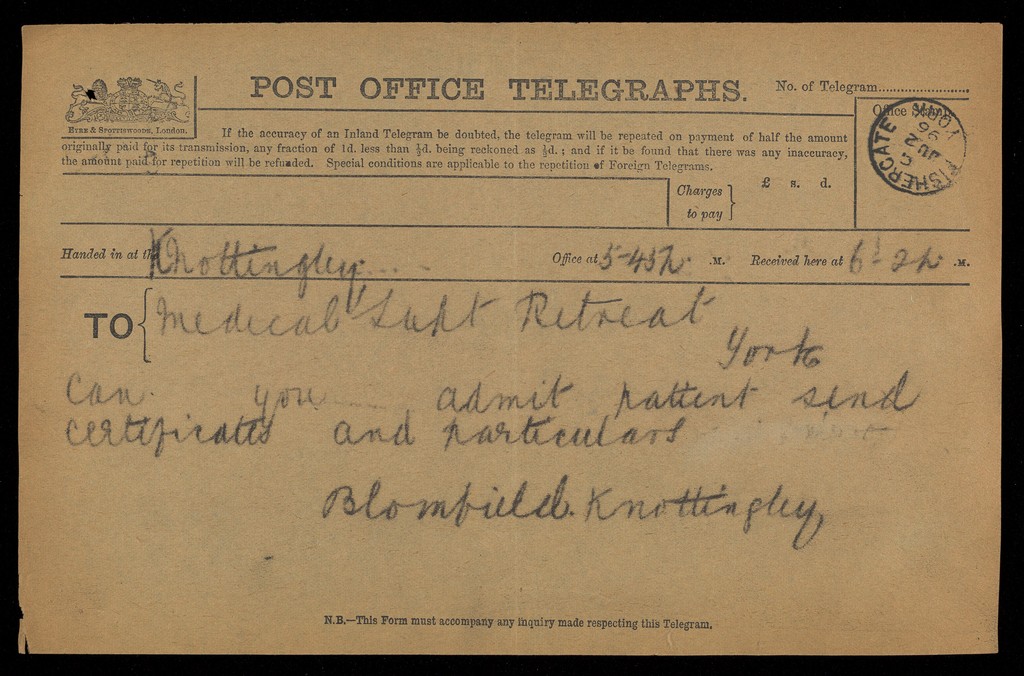 POST OFFICE TELEGRAPHS.
No. of Telegram
EYRE & SPOTTISWOODE, London.
Office Stamp.
If the accuracy of an Inland Telegram be doubted, the telegram will be repeated on payment of half the amount
originally paid for its transmission, any fraction of 1d. less than ½d. being reckoned as ½d.; and if it be found that there was any inaccuracy,
the amount paid for repetition will be refunded. Special conditions are applicable to the repetition of Foreign Telegrams.
FISHERGATE YORK
JU 2
96
Charges to pay } £ s. d.
Handed in at the Knottingley Office at 5-45 p .M. Received here at 6-2 p .M.
TO { Medical Supt Retreat
York
Can you admit patient send
certificates and particulars
Blomfield. Knottingley
N.B.—This Form must accompany any inquiry made respecting this Telegram.